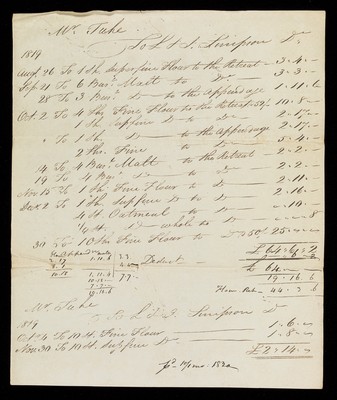 Mr. Tuke
To L & J. Simpson Dr.
1819
Augt 26 To 1 Sk Superfine Flour to the Retreat 3.4.—
Sep 21 To 6 Bus. Malt to Do 3.3.—
28 To 3 Bus. Do to the Appendage 1.11.6
Oct 2 To 4 Sks Fine Flour to the Retreat 52/ 10.8.—
1 Sk Supfine Do to Do 2.17.—
" To 1 Sk Do to the Appendage 2.17.—
2 Sks Fine to Do 5.4.—
14 To 4 Bus. Malt to the Retreat 2.2.—
19 To 4 Bus. Do to Do 2.2.—
Nov 15 To 1 Sk Fine Flour to Do 2.11.
Decr 2 To 1 Sk Supfine Do to Do 2.16.—
4 St. Oatmeal to Do .10.—
1/4 St Do whole to Do 8
30 To 10 Sk Fine Flour to Do 50/ 25.—
£64.6.2
Deduct 6.2
£64.—
19.16.6
Flour Retr. 44.3.6
Mr. Tuke
To L & J. Simpson Dr
1819
Oct 4 To 10 St. Fine Flour 1.6.—
Nov 30 To 10 St. Supfine Do 1.8.—
£2.14.—
1820